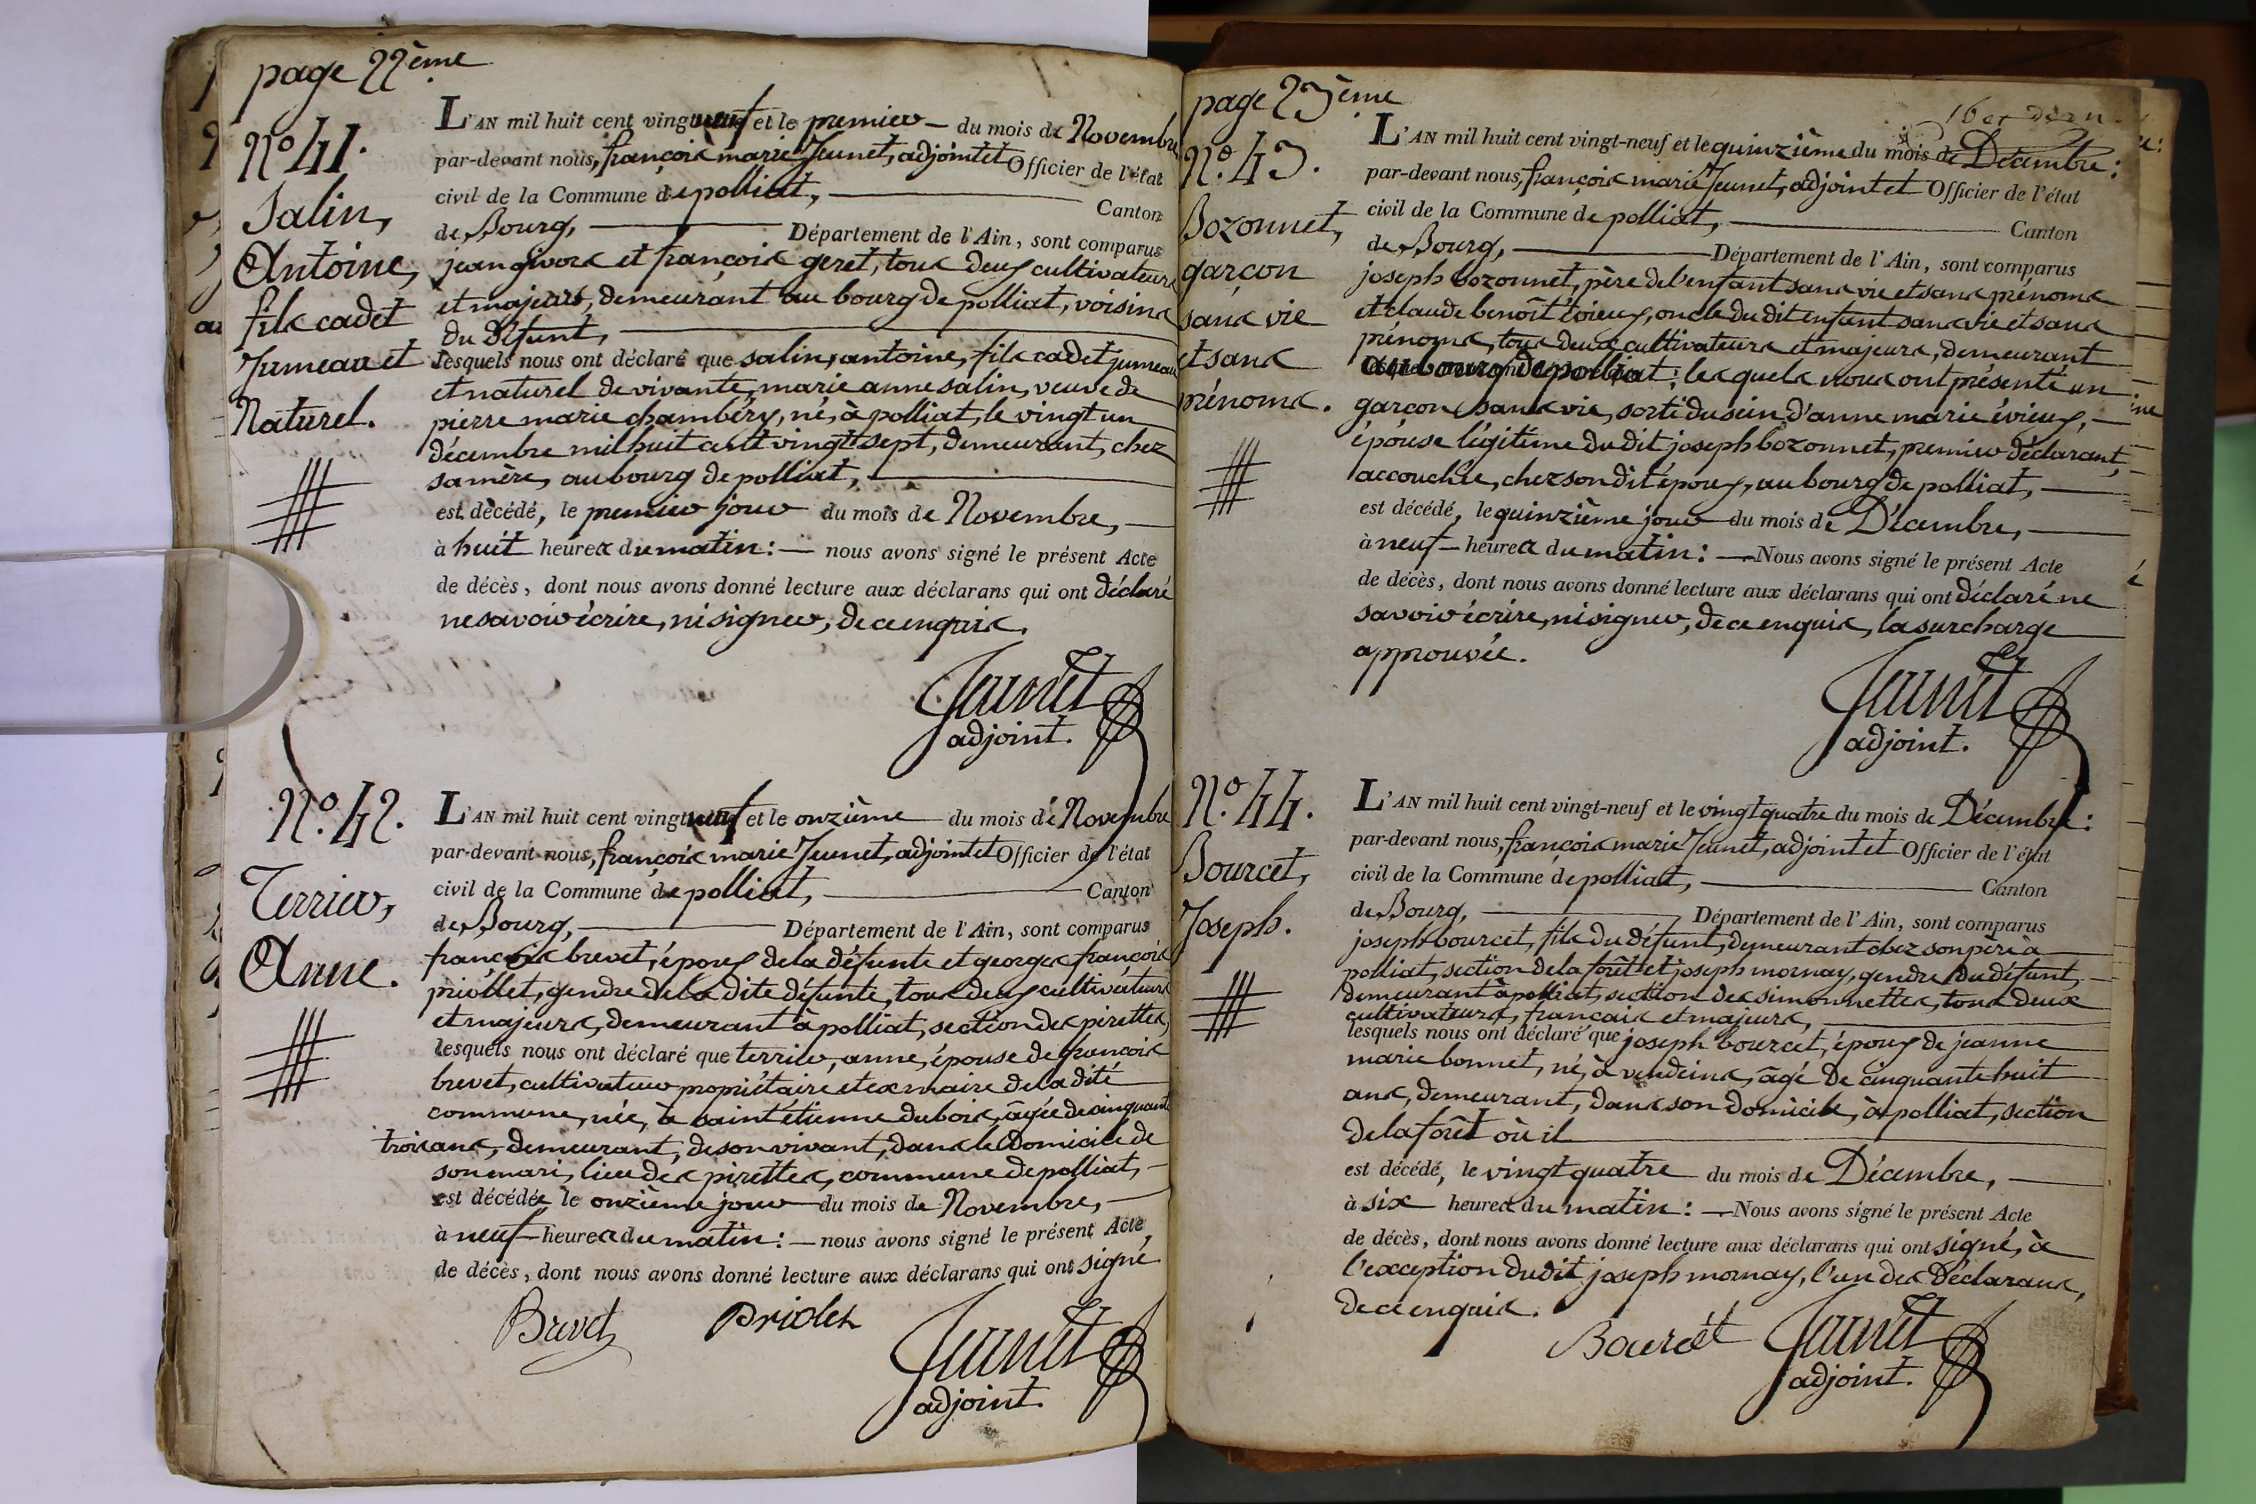 page 22ème
N.º 41.
Salin,
Antoine,
fils cadet
Jumeau et
Naturel.
L'AN mil huit cent vingt neuf et le premier du mois de Novembre
par-devant nous, françois marie Jeunet, adjoint et Officier de l'état
civil de la Commune de polliat, Canton
de Bourg, Département de l'Ain, sont comparus
jean givors et françois geret, tous deux cultivateurs
et majeurs, demeurant au bourg de polliat, voisins
du défunt,
lesquels nous ont déclaré que salin, antoine, fils cadet jumeau
et naturel de vivante, marie anne salin, veuve de
pierre marie chambéry, né, à polliat, le vingt un
décembre mil huit cent vingt sept, demeurant, chez
sa mère, au bourg de polliat,
est décédé, le premier jour du mois de Novembre,
à huit heures du matin : nous avons signé le présent Acte
de décès, dont nous avons donné lecture aux déclarans qui ont déclaré
ne savoir écrire, ni signer, de ce enquis.
Jeunet
adjoint.
N.º 42.
Terrier,
Anne.
L'AN mil huit cent vingt neuf et le onzième du mois de Novembre
par-devant nous, françois marie Jeunet, adjoint et Officier de l'état
civil de la Commune de polliat, Canton
de Bourg, Département de l'Ain, sont comparus
françois brevet, époux de la défunte et georges françois
priollet, gendre de la dite défunte, tous deux cultivateurs
et majeurs, demeurant à polliat, section des pirettes,
lesquels nous ont déclaré que terrier, anne, épouse de françois
brevet, cultivateur propriétaire et ex maire de la dite
commune, née, à saint étienne du bois, âgée de cinquante
trois ans, demeurant, de son vivant, dans le Domicile de
son mari, lieu des pirettes, commune de polliat,
est décédée le onzième jour du mois de Novembre,
à neuf heures du matin : nous avons signé le présent Acte
de décès, dont nous avons donné lecture aux déclarans qui ont signé
Brevet Priolet
Jeunet
adjoint.
page 23ème
16 et dern
N.º 43.
Bozonnet,
garçon
sans vie
et sans
prénoms.
L'AN mil huit cent vingt-neuf et le quinzième du mois de Décembre :
par-devant nous, françois marie Jeunet, adjoint et Officier de l'état
civil de la Commune de polliat, Canton
de Bourg, Département de l'Ain, sont comparus
joseph bozonnet, père de l'enfant sans vie et sans prénoms
et claude benoît évieux, oncle du dit enfant sans vie et sans
prénoms, tous deux cultivateurs et majeurs, demeurant
au bourg de polliat : lesquels nous ont présenté un
garçon sans vie, sorti du sein d'anne marie évieux,
épouse légitime du dit joseph bozonnet, premier déclarant,
accouchée, chez son dit époux, au bourg de polliat,
est décédé, le quinzième jour du mois de Décembre,
à neuf heures du matin : Nous avons signé le présent Acte
de décès, dont nous avons donné lecture aux déclarans qui ont déclaré ne
savoir écrire, ni signer, de ce enquis, la surcharge
approuvée.
Jeunet
adjoint.
N.º 44.
Bourcet,
Joseph.
L'AN mil huit cent vingt-neuf et le vingt quatre du mois de Décembre :
par-devant nous, françois marie Jeunet, adjoint et Officier de l'état
civil de la Commune de polliat, Canton
de Bourg, Département de l'Ain, sont comparus
joseph bourcet, fils du défunt, demeurant chez son père à
polliat, section de la forêt et joseph mornay, gendre du défunt,
demeurant à polliat, section des simonnettes, tous deux
cultivateurs, français et majeurs,
lesquels nous ont déclaré que joseph bourcet, époux de jeanne
marie bonnet, né, à vendeins, âgé de cinquante huit
ans, demeurant, dans son domicile, à polliat, section
de la forêt où il
est décédé, le vingt quatre du mois de Décembre,
à six heures du matin : Nous avons signé le présent Acte
de décès, dont nous avons donné lecture aux déclarans qui ont signé, à
l'exception du dit joseph mornay, l'un des Déclarans,
de ce enquis.
Bourcet Jeunet
adjoint.